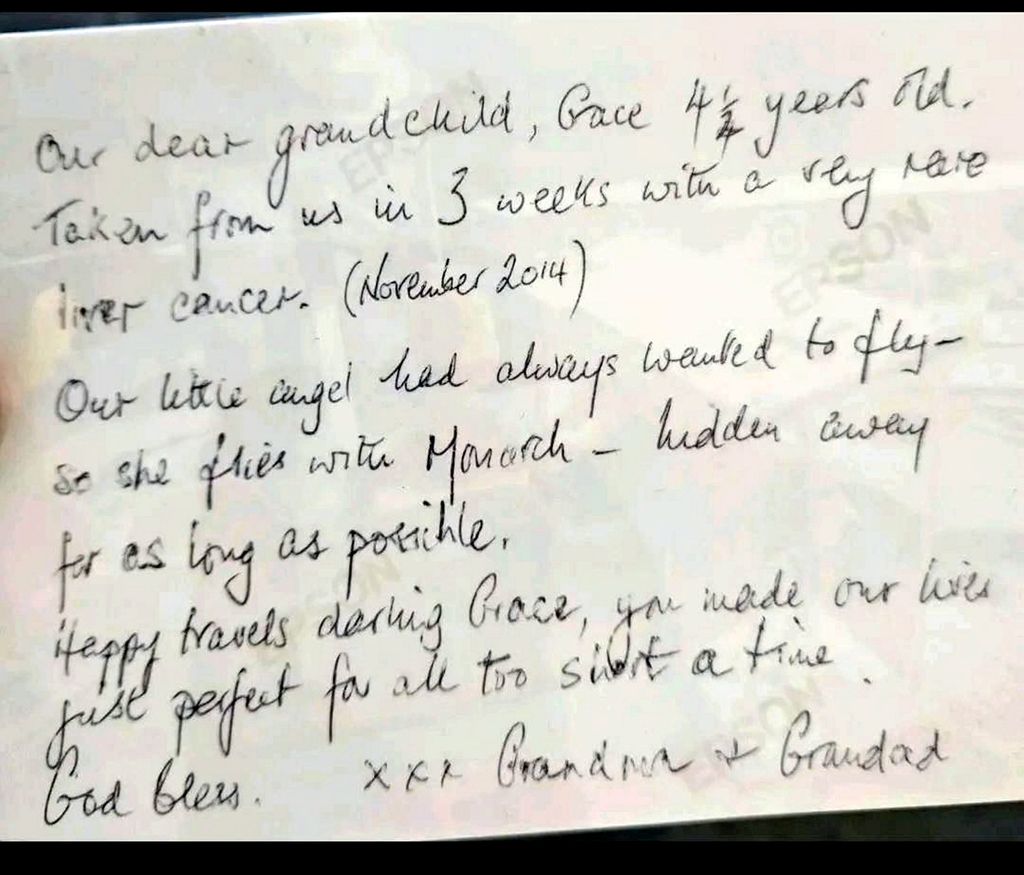 Our dear grandchild, Grace 4¼ years old.
Taken from us in 3 weeks with a very rare
liver cancer. (November 2014)
Our little angel had always wanted to fly –
so she flies with Monarch – hidden away
for as long as possible.
Happy travels darling Grace, you made our lives
just perfect for all too short a time.
God bless. xxx Grandma + Grandad
EPSON
EPSON
EPSON
EPSON